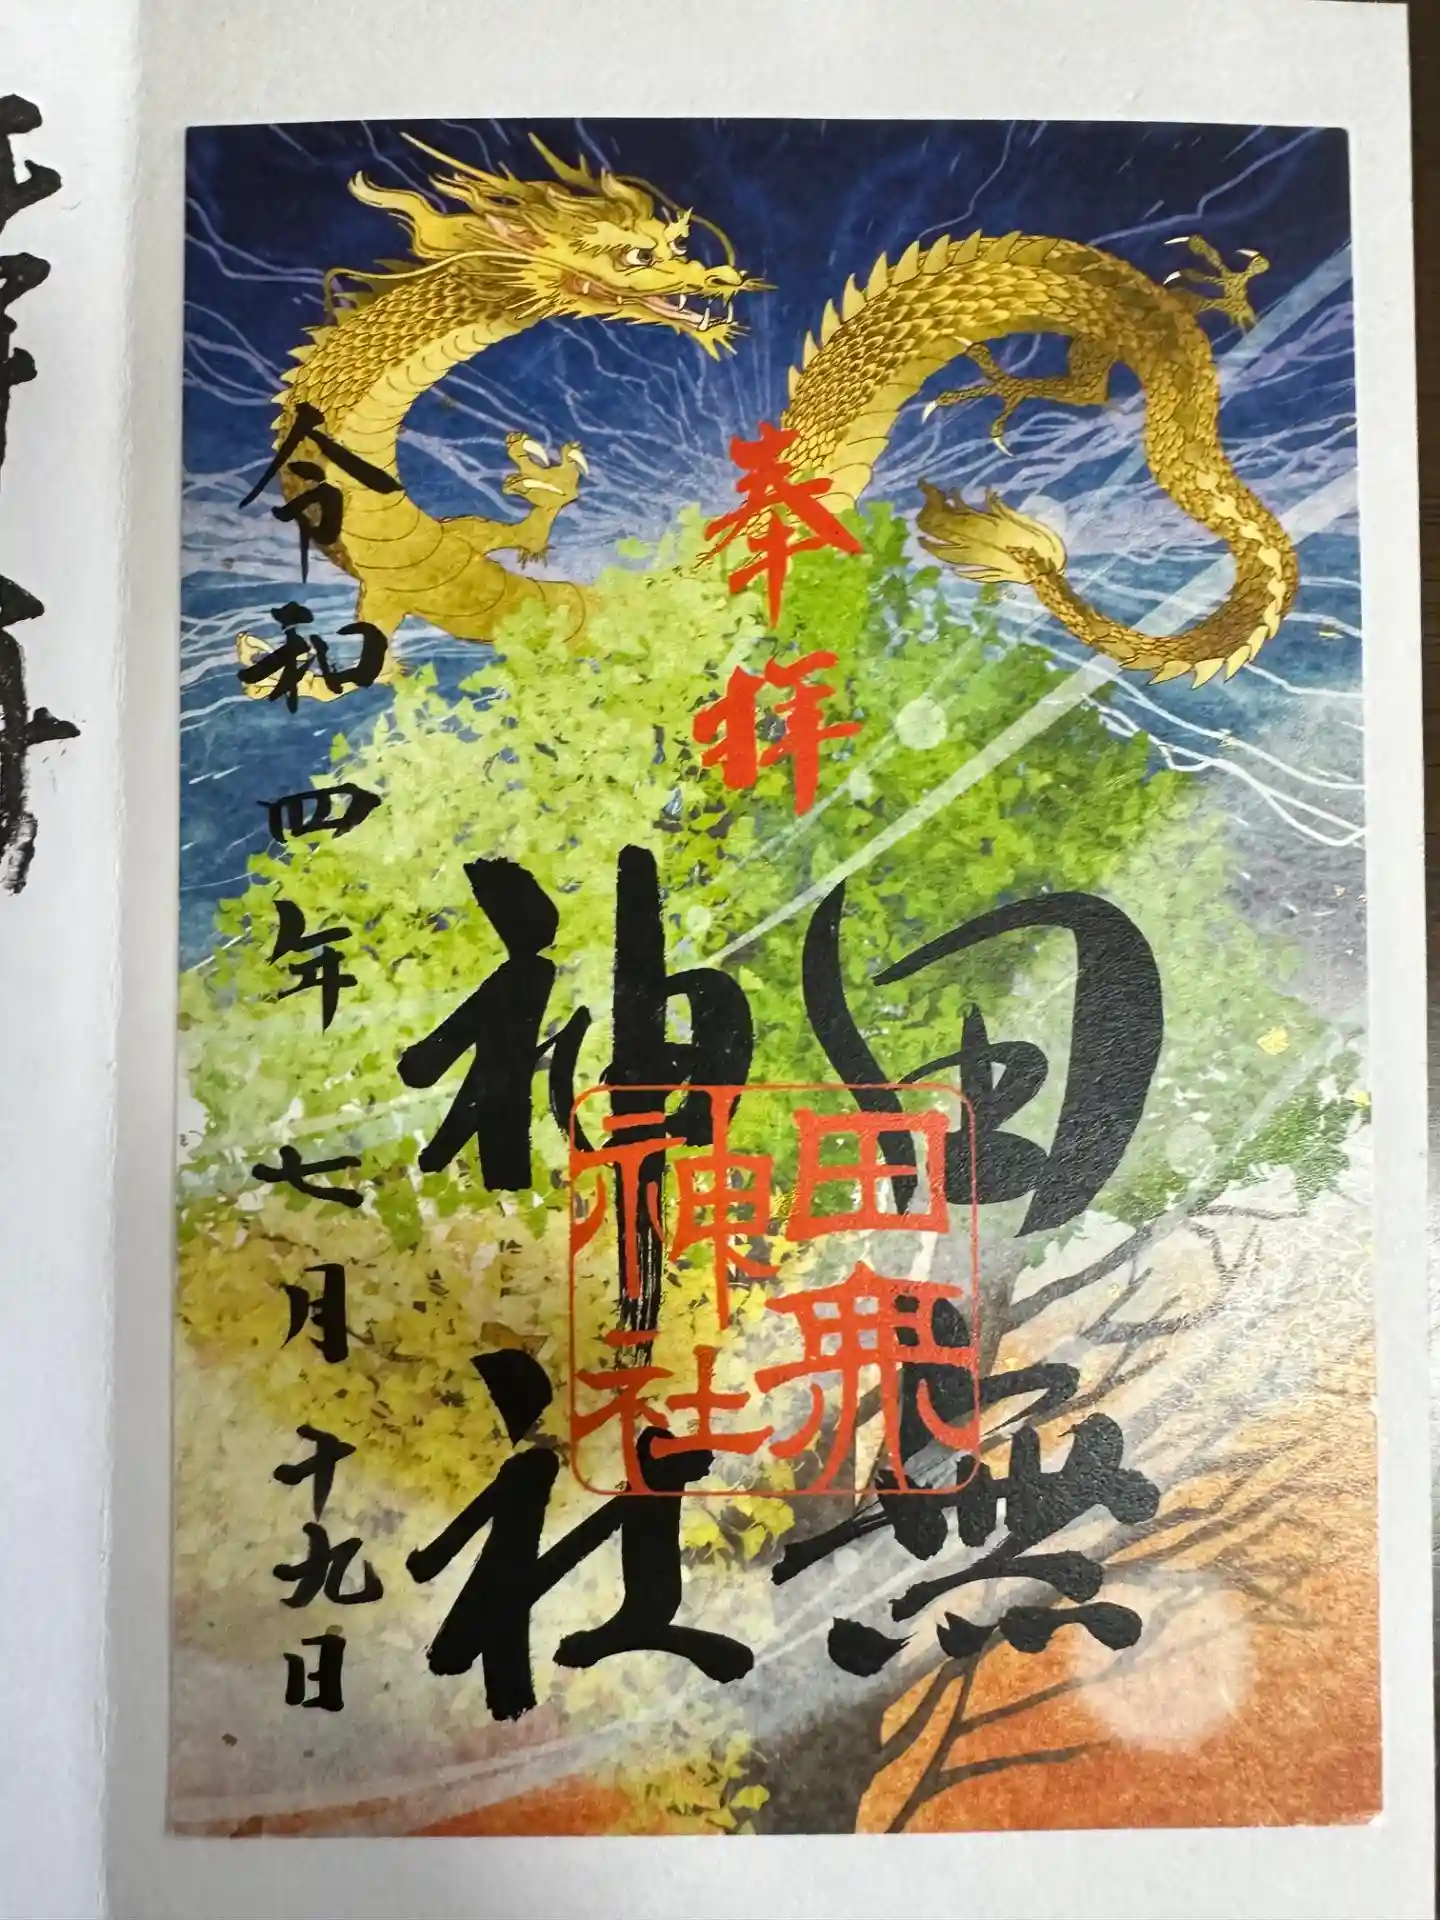 奉拝
田無
神社
田無
神社
令和四年七月十九日